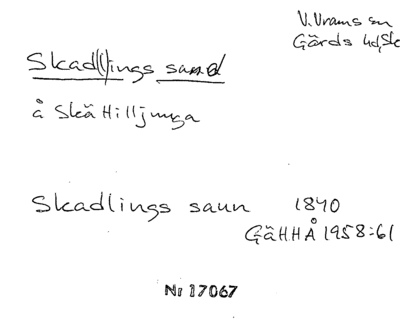 V. Vrams sn
Gärds hd, Sk
Skad(l)ings sand
å Skä Hilljunga
Skadlings saun 1840
GäHHÅ 1958:61
Nr 17067